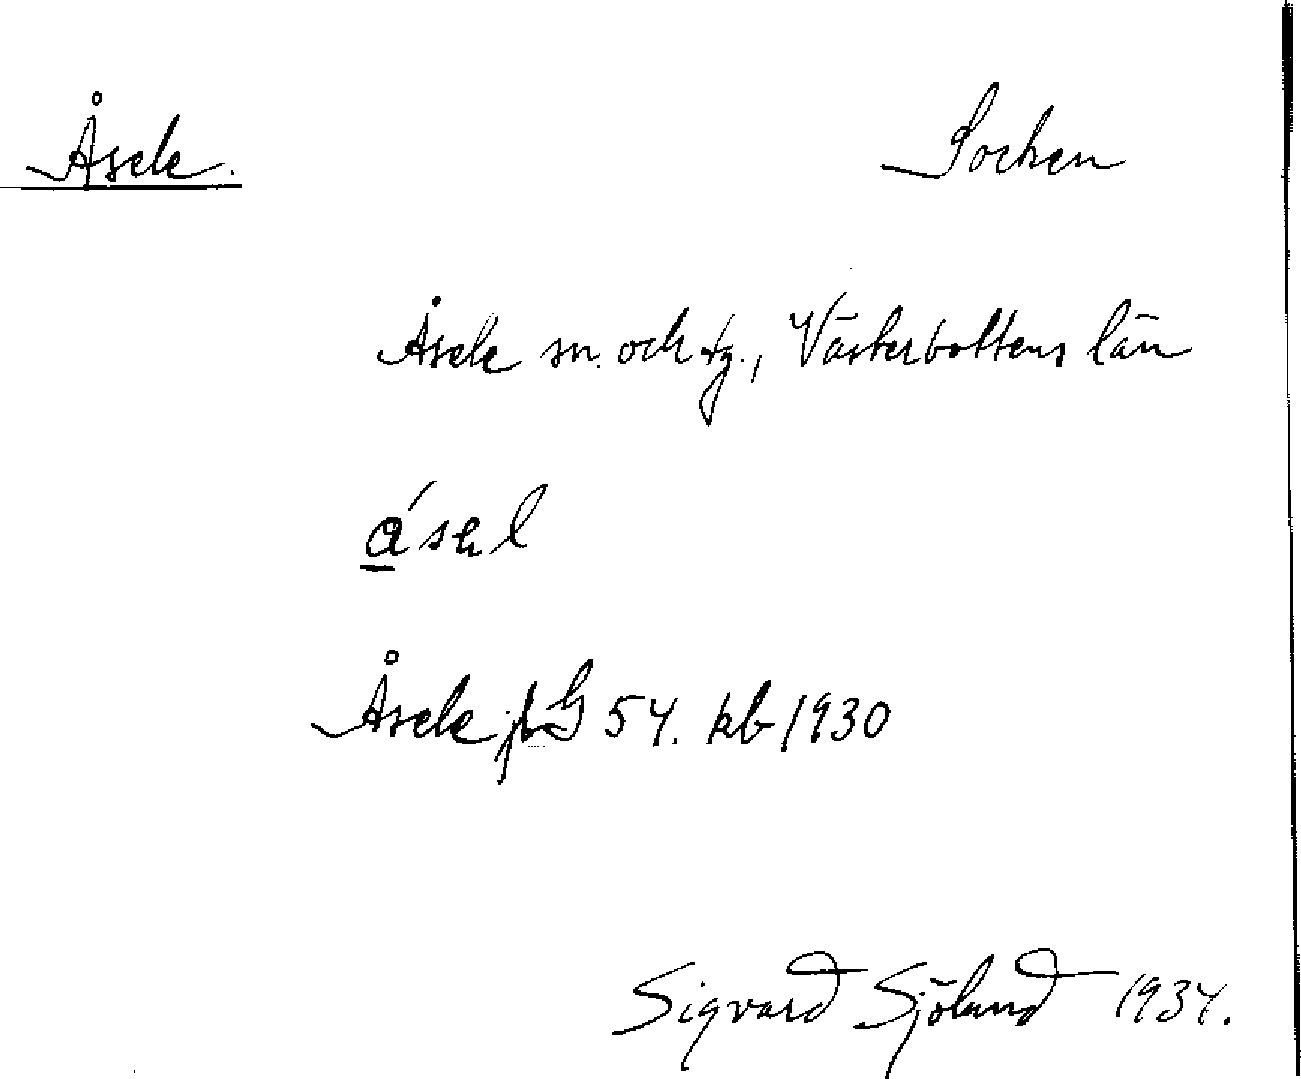 Åsele. Socken
Åsele sn. och tg., Västerbottens län
Åsele jb G 54. kb 1930
Sigvard Sjölund 1934.